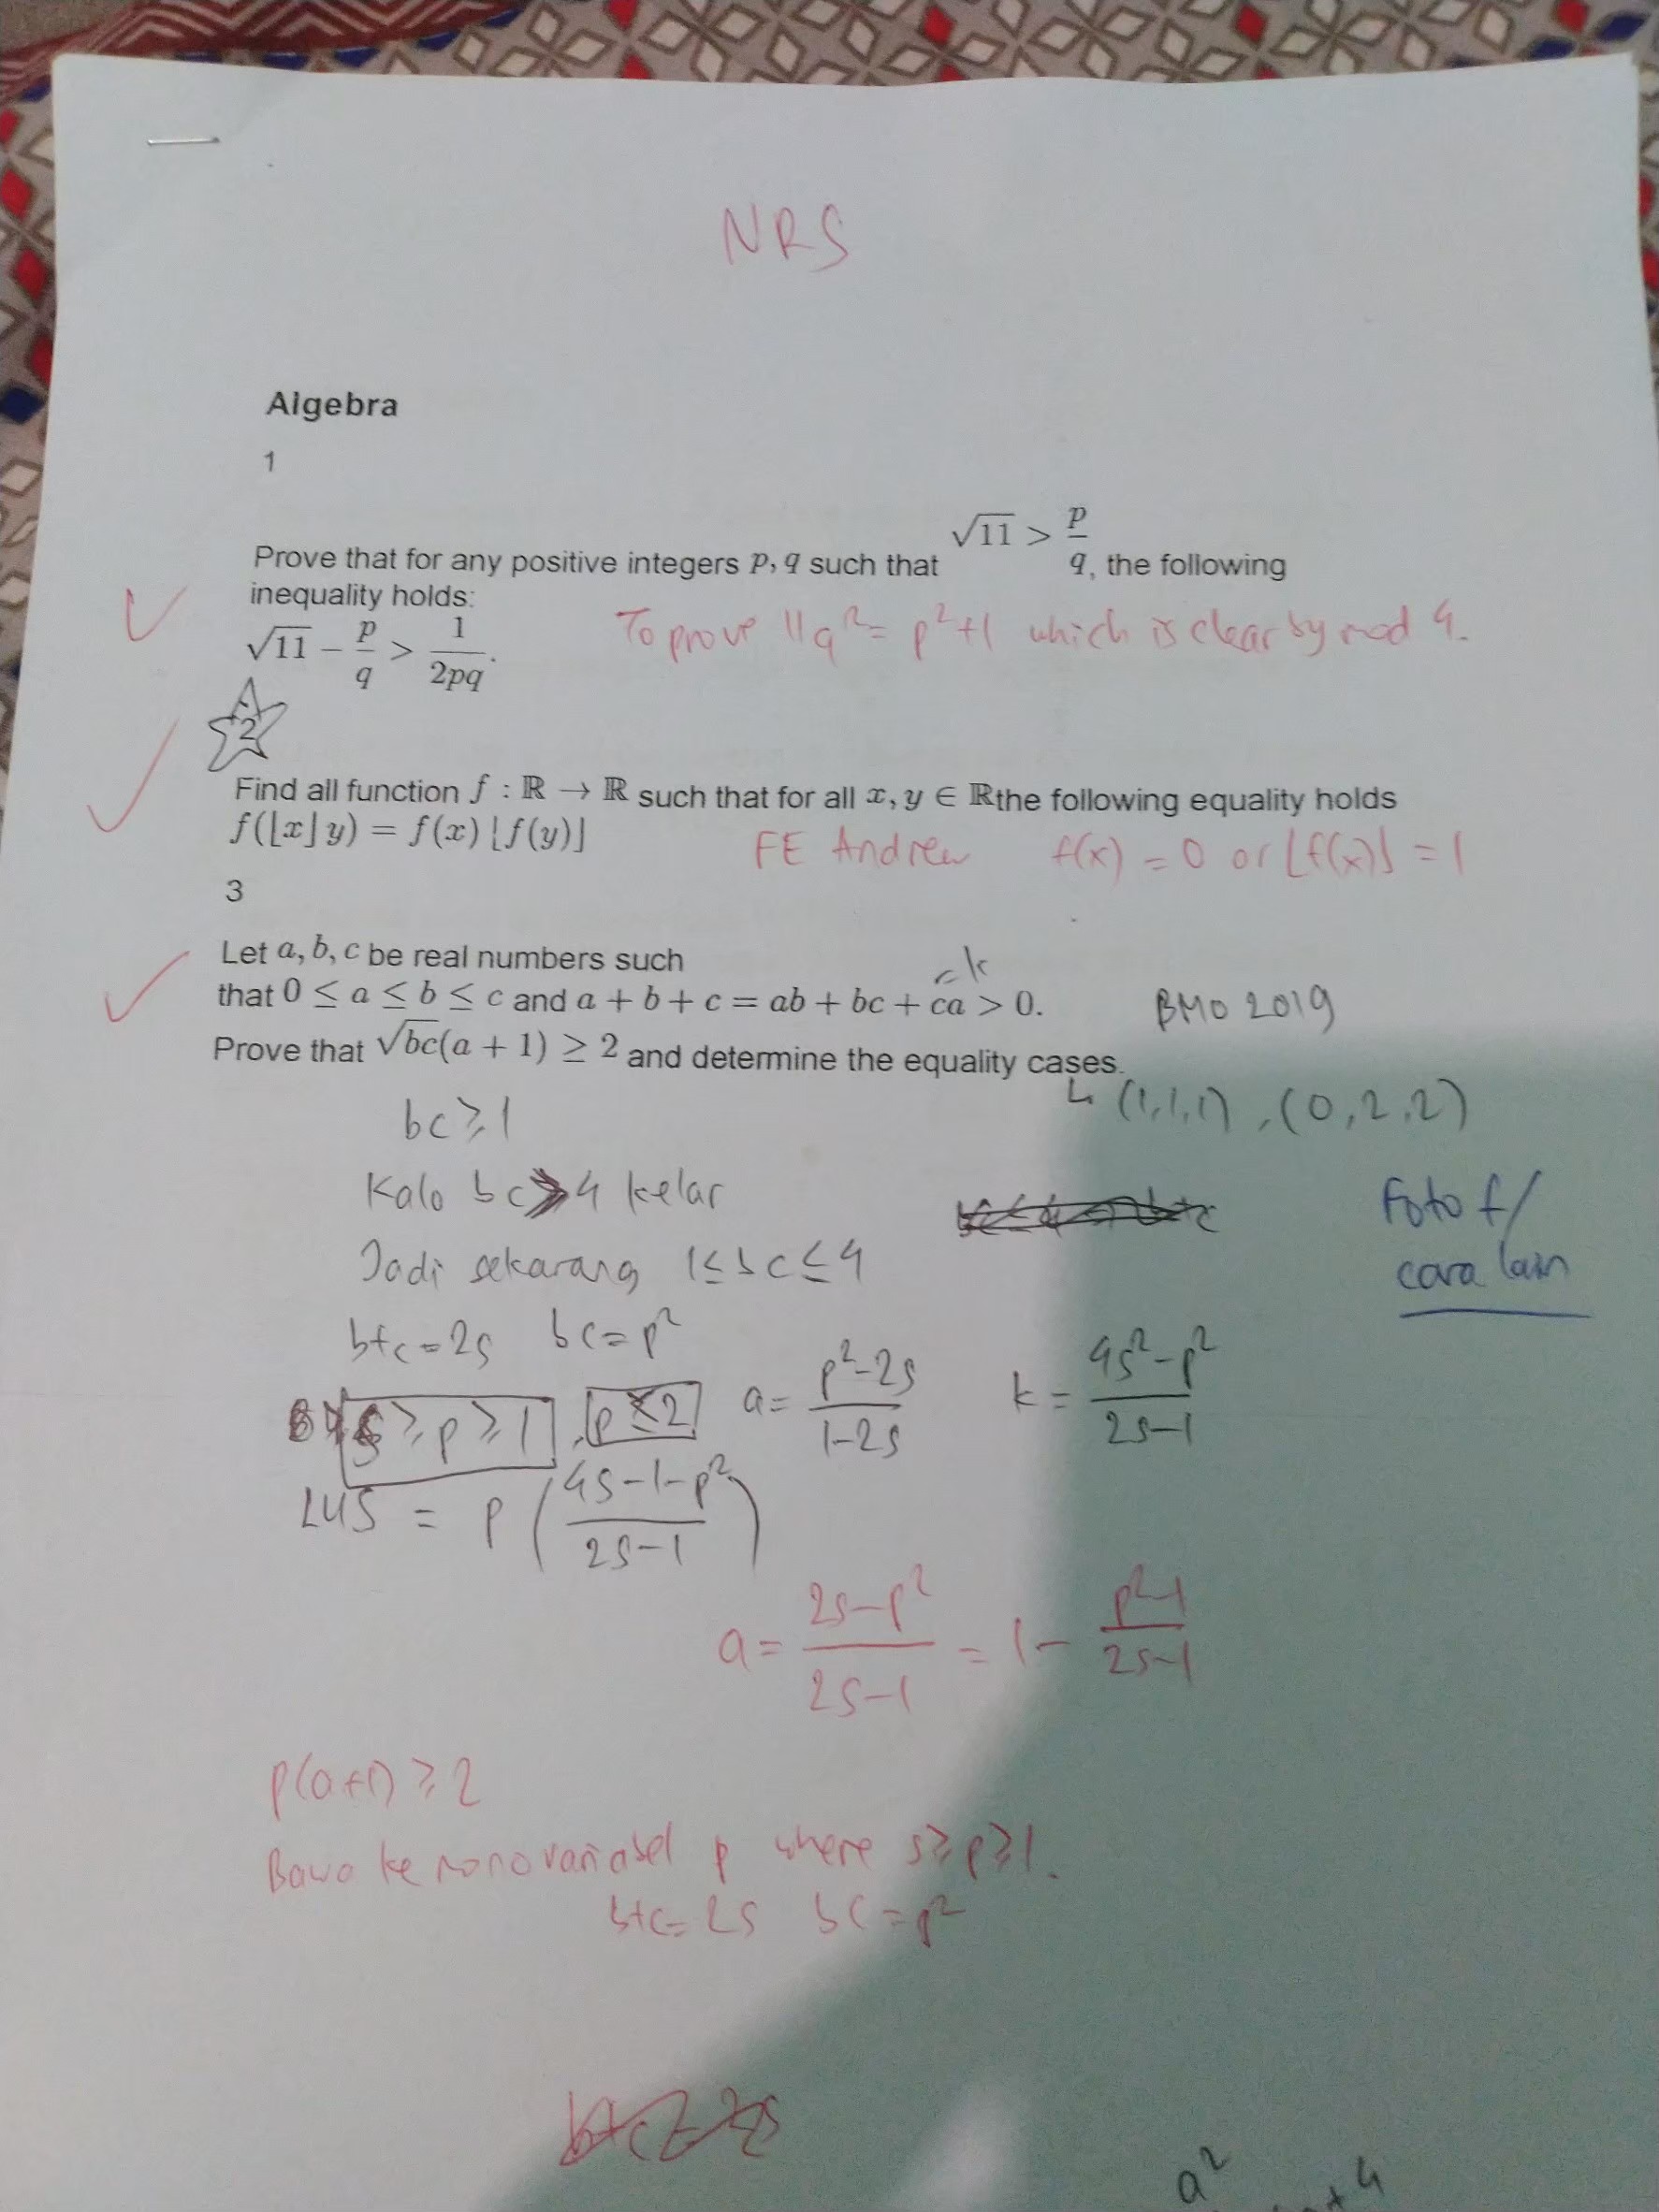 NRS
Algebra
1
Prove that for any positive integers p, q such that √11 > p/q, the following
inequality holds:
√11 − p/q > 1/2pq.
To prove 11q² = p²+1 which is clear by mod 4.
2
Find all function f : ℝ → ℝ such that for all x, y ∈ ℝthe following equality holds
f(⌊x⌋y) = f(x)⌊f(y)⌋
FE Andrew f(x) = 0 or ⌊f(x)⌋ = 1
3
Let a, b, c be real numbers such
that 0 ≤ a ≤ b ≤ c and a + b + c = ab + bc + ca > 0.
k
BMO 2019
Prove that √bc(a + 1) ≥ 2 and determine the equality cases.
↳ (1,1,1), (0,2,2)
bc ≥ 1
Kalo bc ≥ 4 kelar
Foto f/
cara lain
Jadi sekarang 1 ≤ bc ≤ 4
b+c = 2s bc = p²
a = (p²−2s)/(1−2s) k = (4s²−p²)/(2s−1)
s ≥ p ≥ 1, p ≤ 2
LHS = p((4s−1−p²)/(2s−1))
a = (2s−p²)/(2s−1) = 1 − (p²−1)/(2s−1)
p(a+1) ≥ 2
Bawa ke monovariabel p where s ≥ p ≥ 1.
b+c = 2s bc = p²
a²
+4